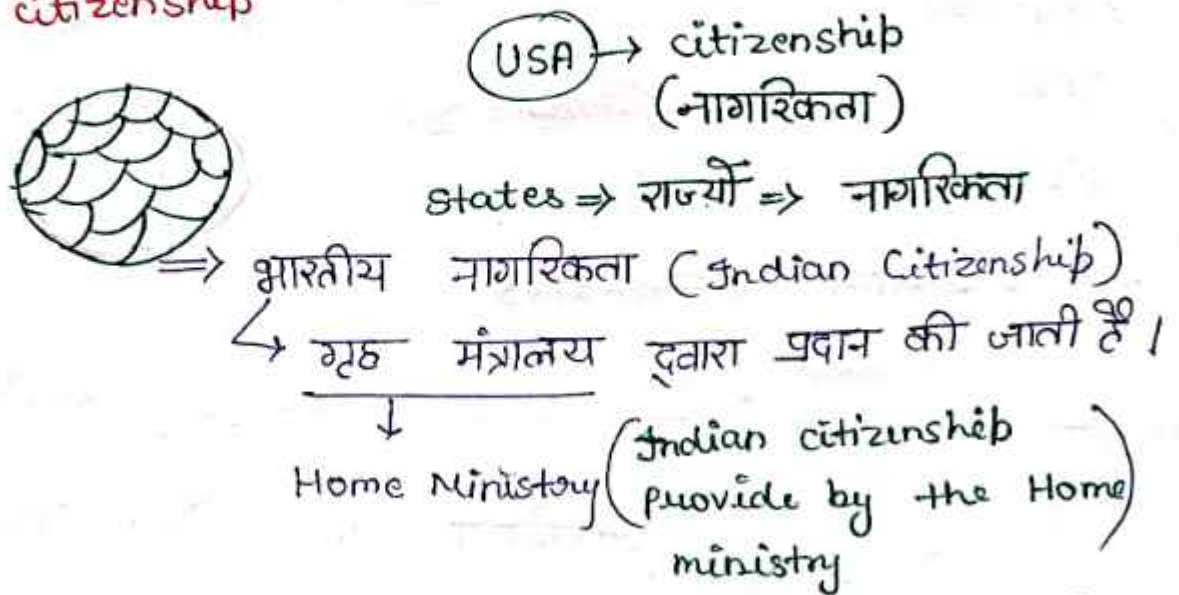 citizenship
USA → citizenship
(नागरिकता)
States ⇒ राज्यों ⇒ नागरिकता
⇒ भारतीय नागरिकता (Indian Citizenship)
↳ गृह मंत्रालय द्वारा प्रदान की जाती है।
↓
Home Ministory (Indian citizenship
provide by the Home
ministry)